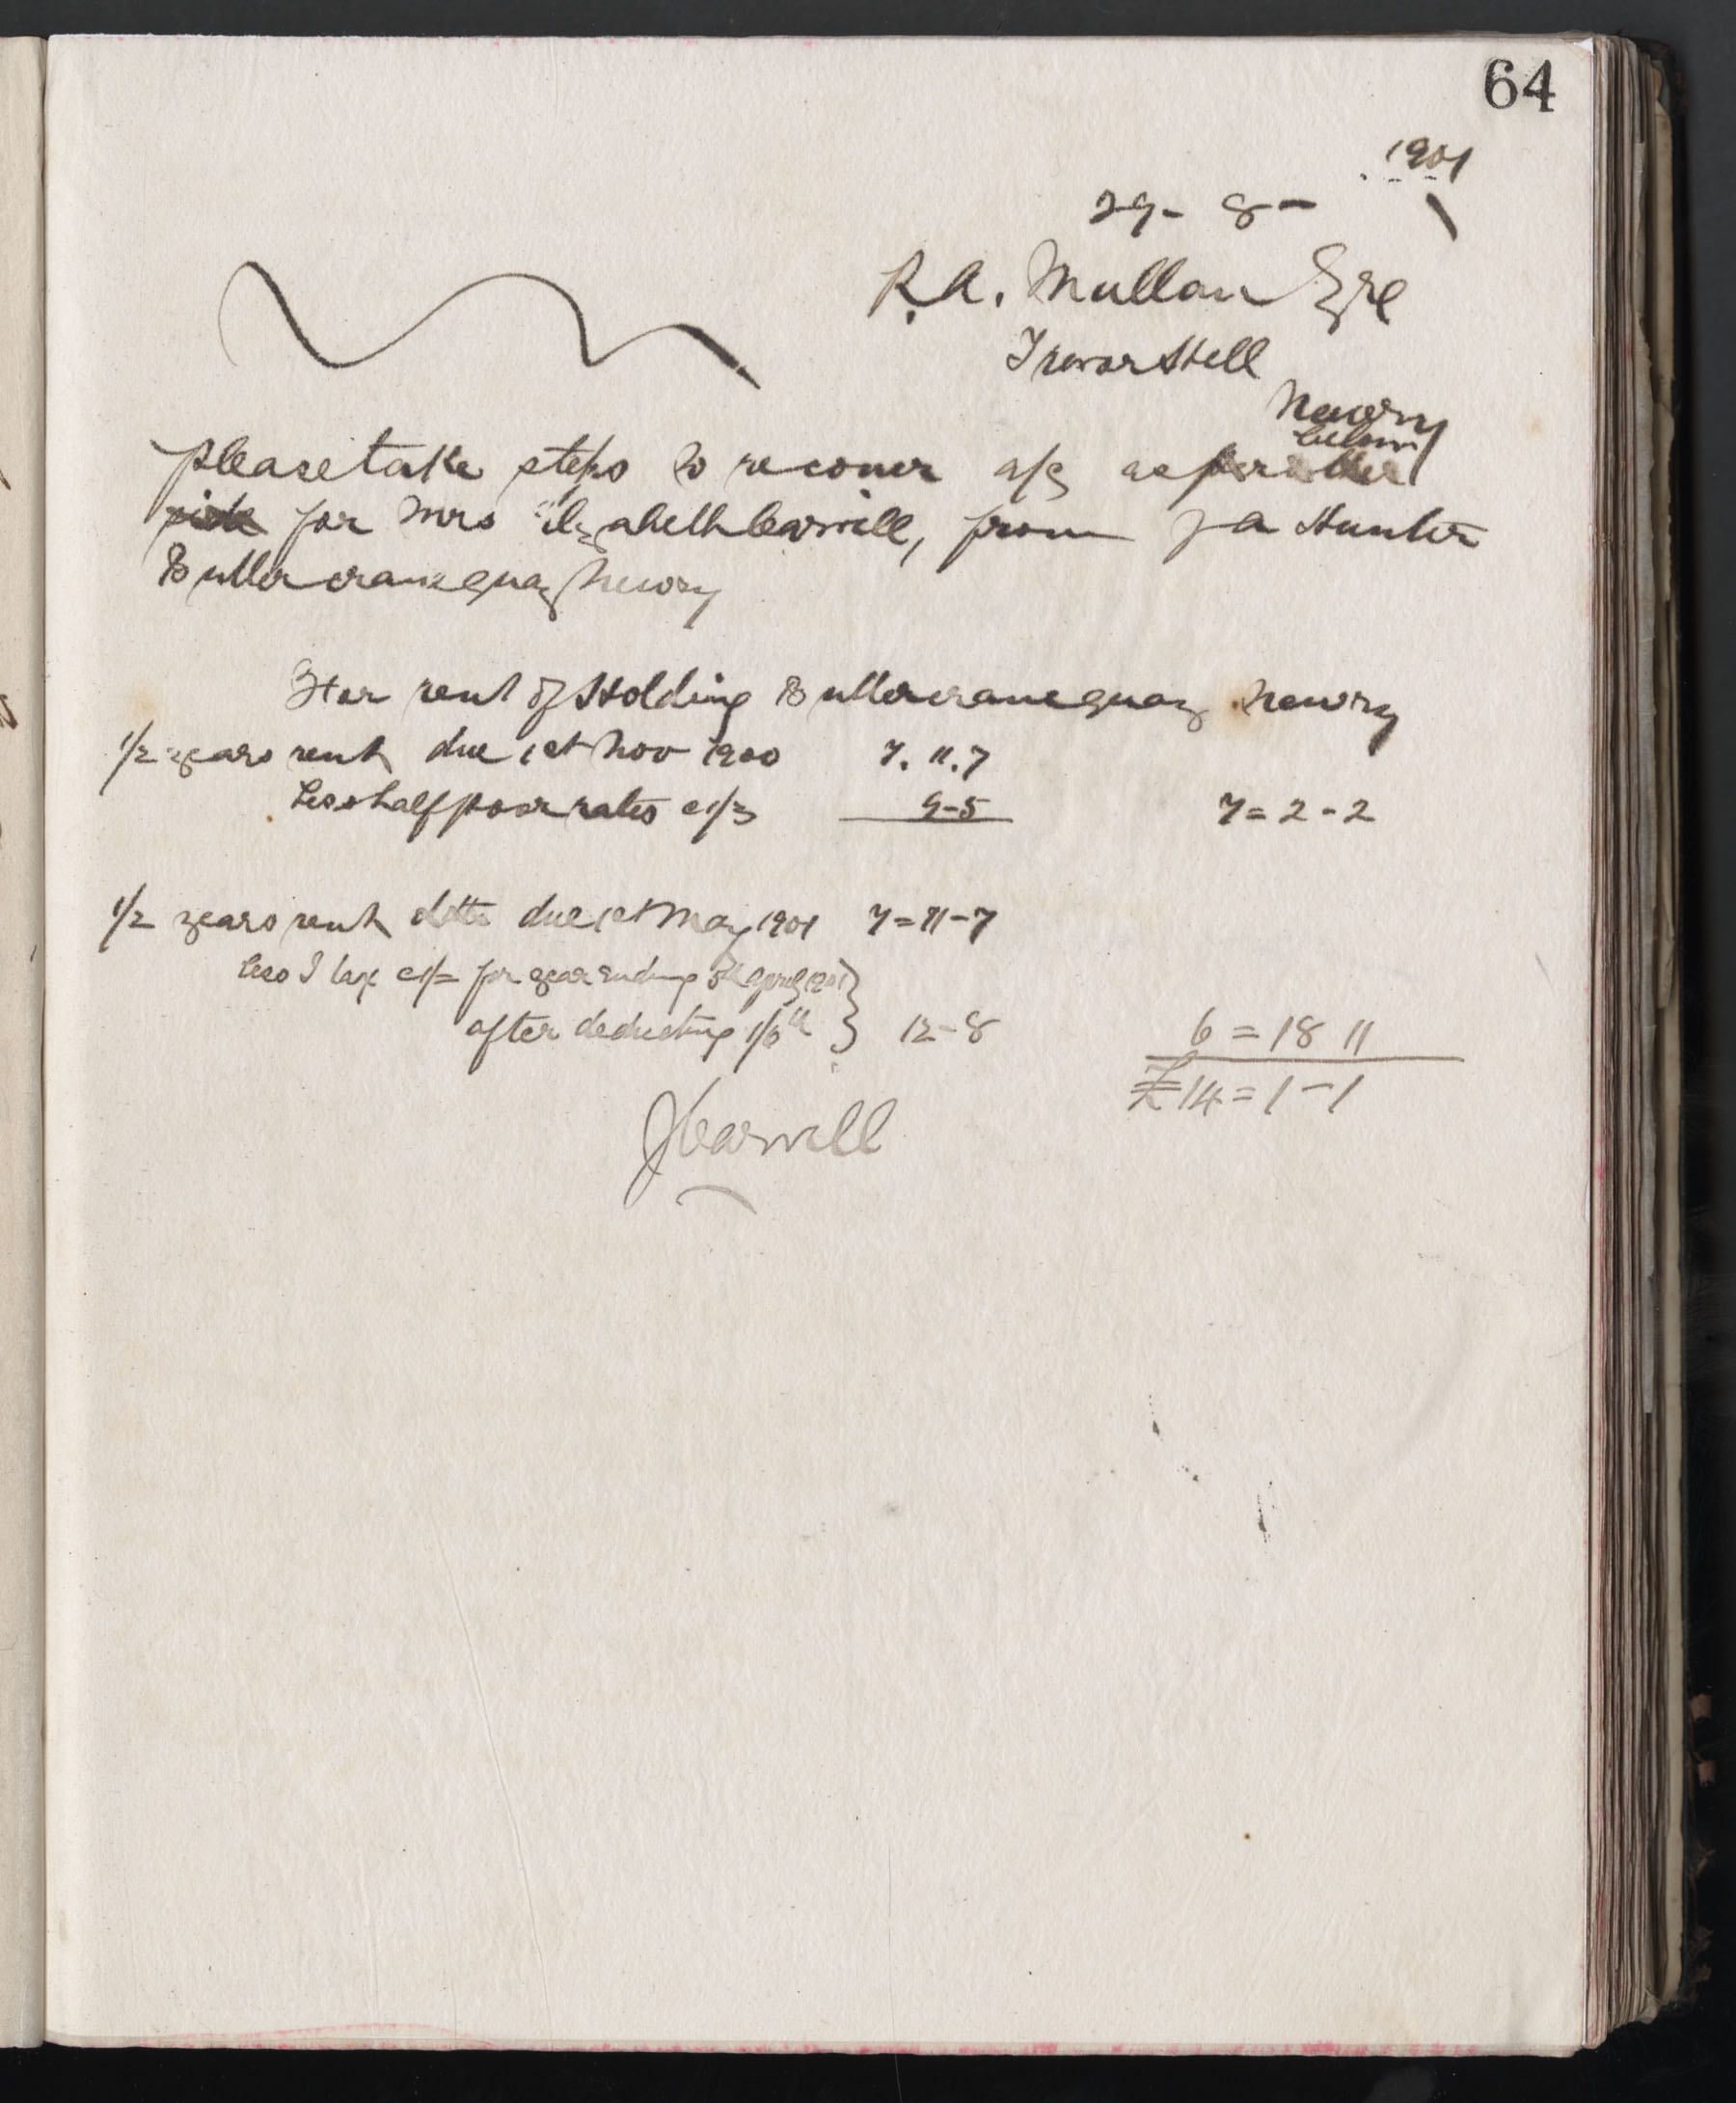 64
1901
29- 8-
R.A. Mullan Esqre
Trevor Hill
Newry
below
Please take steps to recover a/c as per other
side for Mrs Elizabeth Carvill, from J A Hunter
Buttercrane quay Newry
For rent of Holding Buttercrane quay Newry
1/2 years rent due 1st Nov 1900 7. 11. 7
Less half poor rates @ 1/3 9-5 7=2-2
1/2 years rent ditto due 1st May 1901 7=11-7
less I tax @ 1/= for year ending 5th April 1901
after deducting 1/6th 12-8 6=18 11
£14=1-1
J Carvill